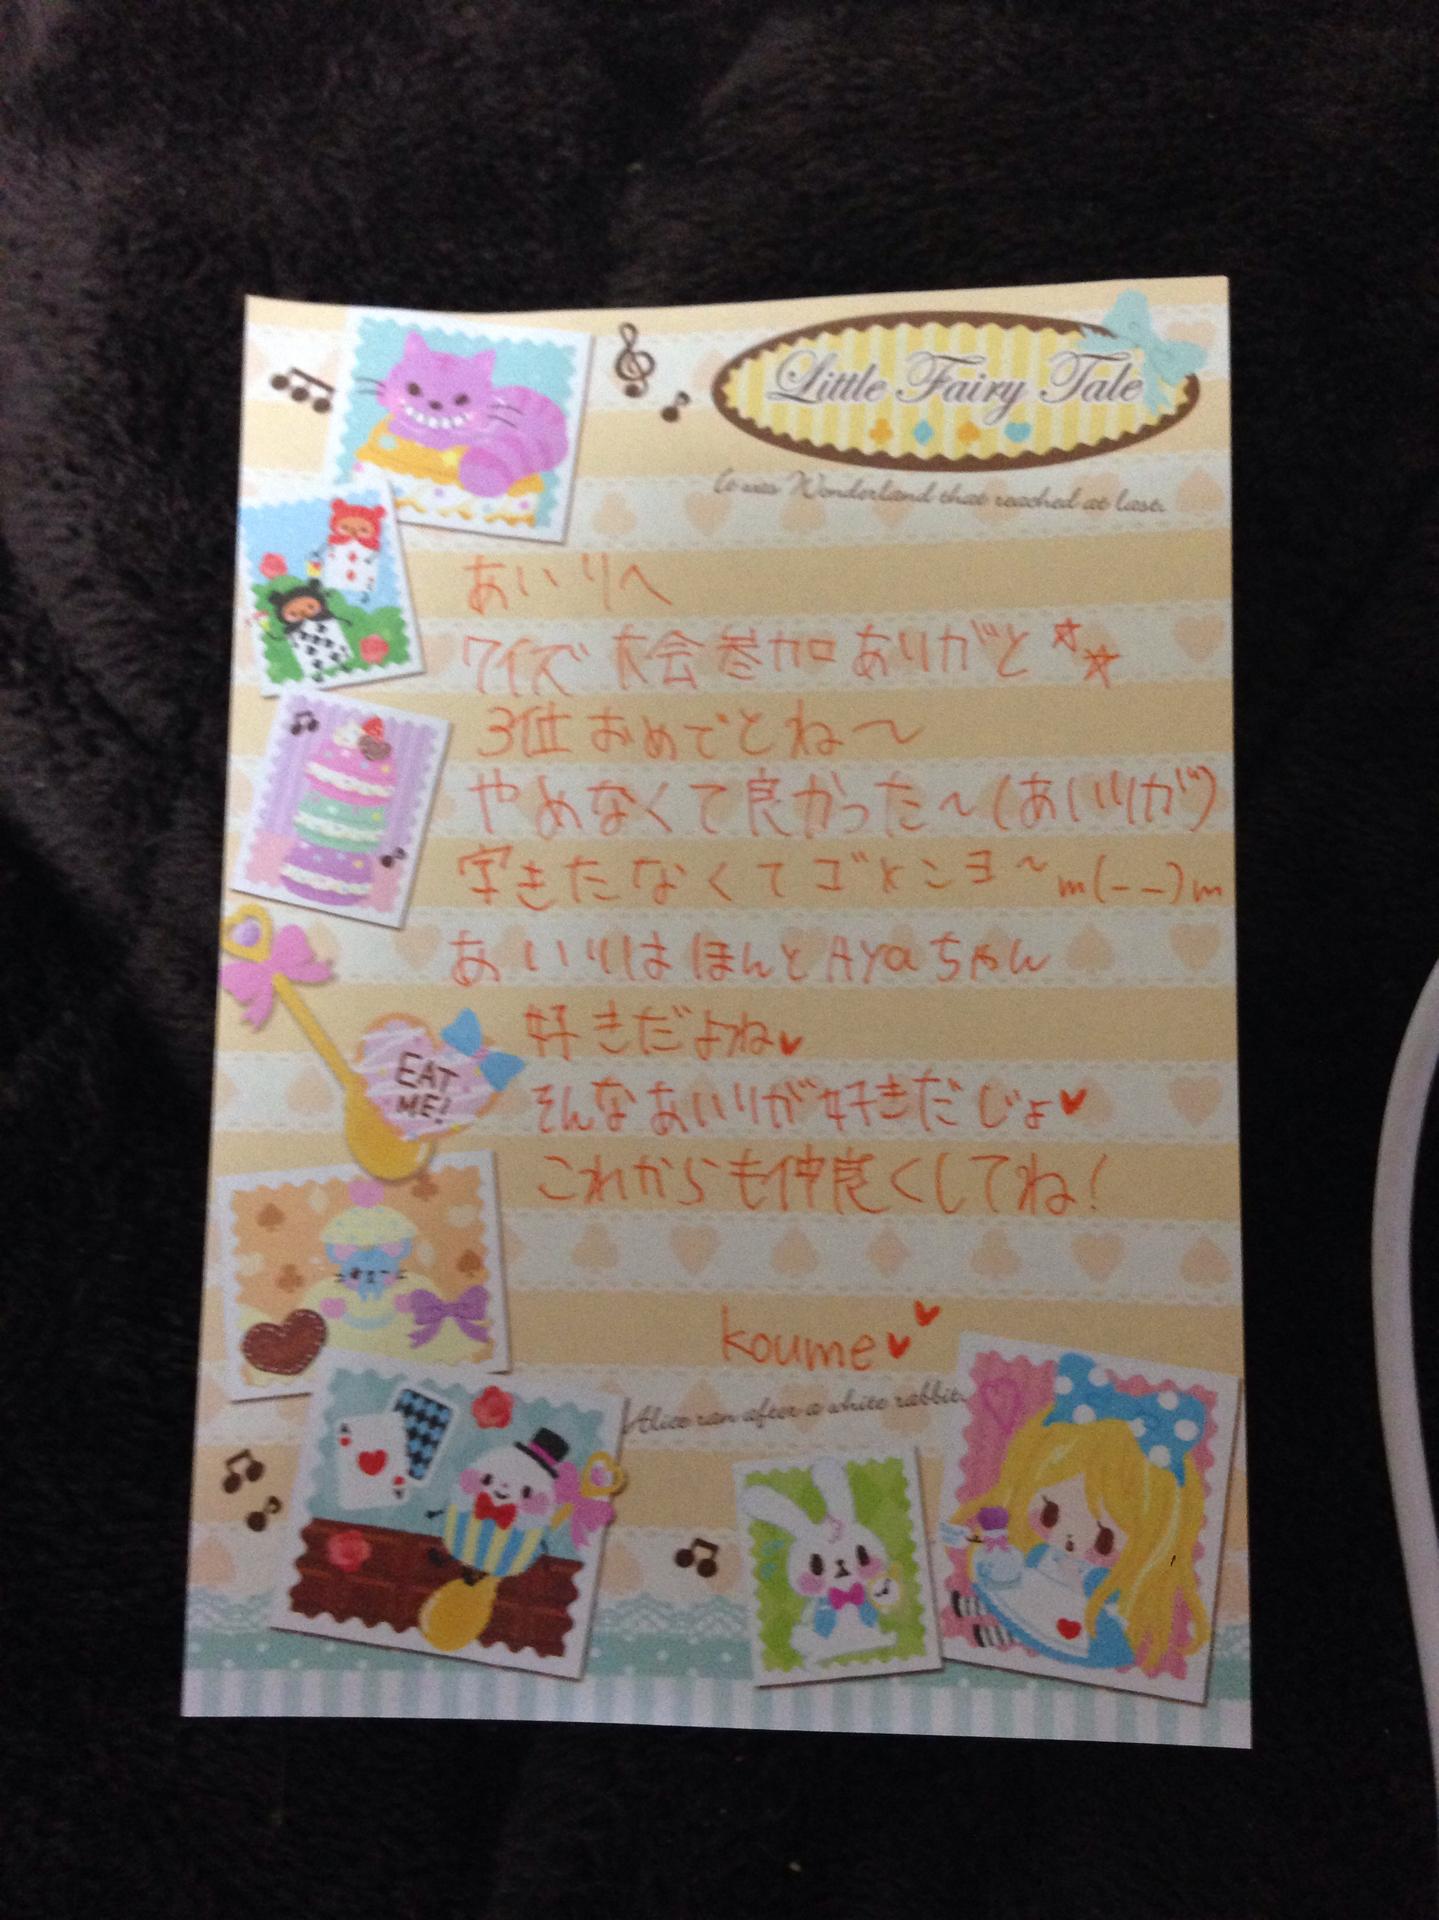 Little Fairy Tale
It was Wonderland that reached at last.
あいりへ
クイズ大会参加ありがと☆☆
3位おめでとね〜
やめなくて良かった〜(あいりが)
字きたなくてゴメンヨ〜m(--)m
あいりはほんとAyaちゃん
好きだよね♥
EAT
ME!
そんなあいりが好きだじょ♥
これからも仲良くしてね!
koume♥♥
Alice ran after a white rabbit.
A